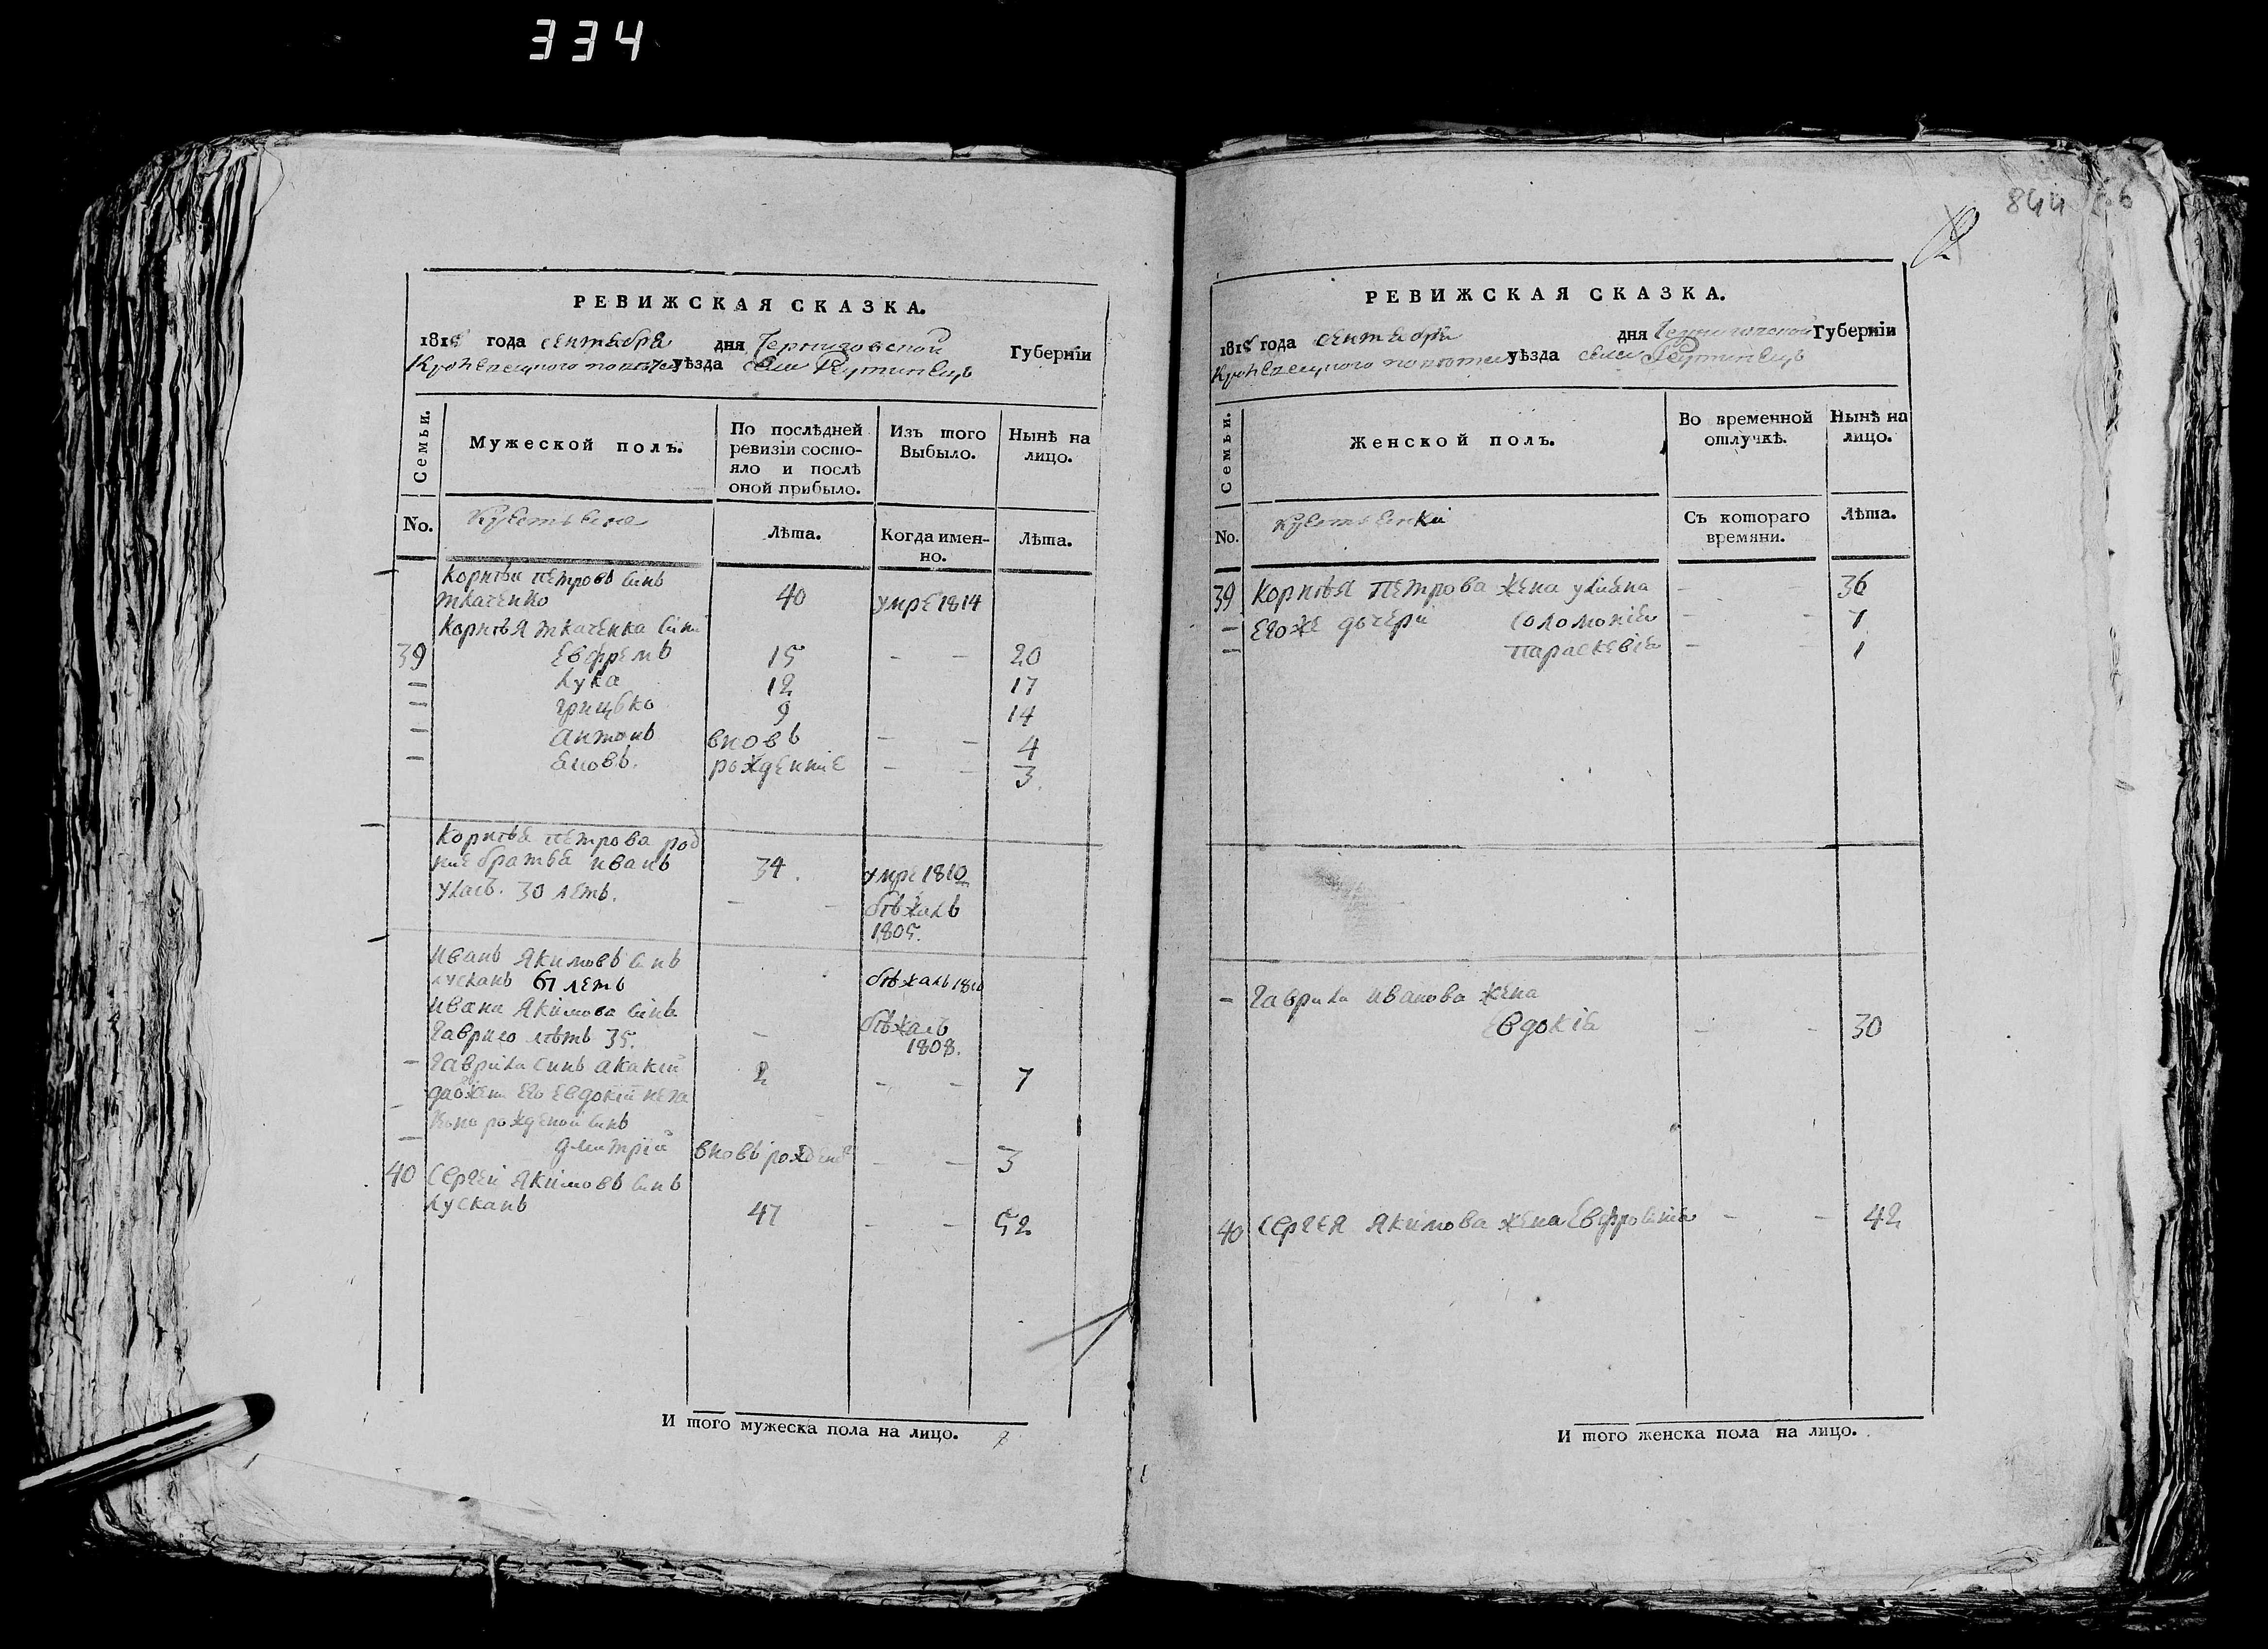 334
844
РЕВИЖСКАЯ СКАЗКА.
1815 года сентабра дня Черниговской Губернїи
Кролевецкого повюта уѣзда села Реутинецъ
Семьи.
Мужеской полъ.
По послѣдней ревизїи состояло и послѣ оной прибыло.
Изъ того Выбыло.
Нынѣ на лицо.
No.
Лѣта.
Когда именно.
Лѣта.
Корнѣи петровъ синъ
ткаченко 40 умре 1814
Корнѣя ткаченка сини
39 Евфремъ 15 - - 20
— лука 12 17
— грицько 9 14
— антонъ вновъ - - 4
— рожденние - - 3
Корнѣя петрова род
ние братья иванъ 34. умре 1810
улас. 30 летъ. - - бѣжалъ
1805.
иванъ якимовъ синъ
лусканъ 61 летъ бѣжалъ 1810
ивана якимова синъ
гаврило лѣтъ 35. - бѣжалъ
1808.
— гаврила синъ акакий 2 - - 7
его Евдокїи неза
рожденой синъ
— дмитрїй вновь рожден - - 3
40 Сергей якимовъ синъ
лусканъ 47 - - 52
И того мужеска пола на лицо. 7
РЕВИЖСКАЯ СКАЗКА.
1815 года сентабра дня Черниговской Губернїи
Кролевецкого повюта уѣзда села Реутинецъ
Семьи.
Женской полъ.
Во временной отлучкѣ.
Нынѣ на лицо.
No.
Съ котораго времяни.
Лѣта.
39 Корнѣя петрова жена улияна - - 36
— Егоже дочери соломонїя - - 7
— параскевїя - - 1
— гаврила иванова жена
Евдокїя - - 30
40 Сергея якимова жена Евфросинїя - - 42
И того женска пола на лицо.